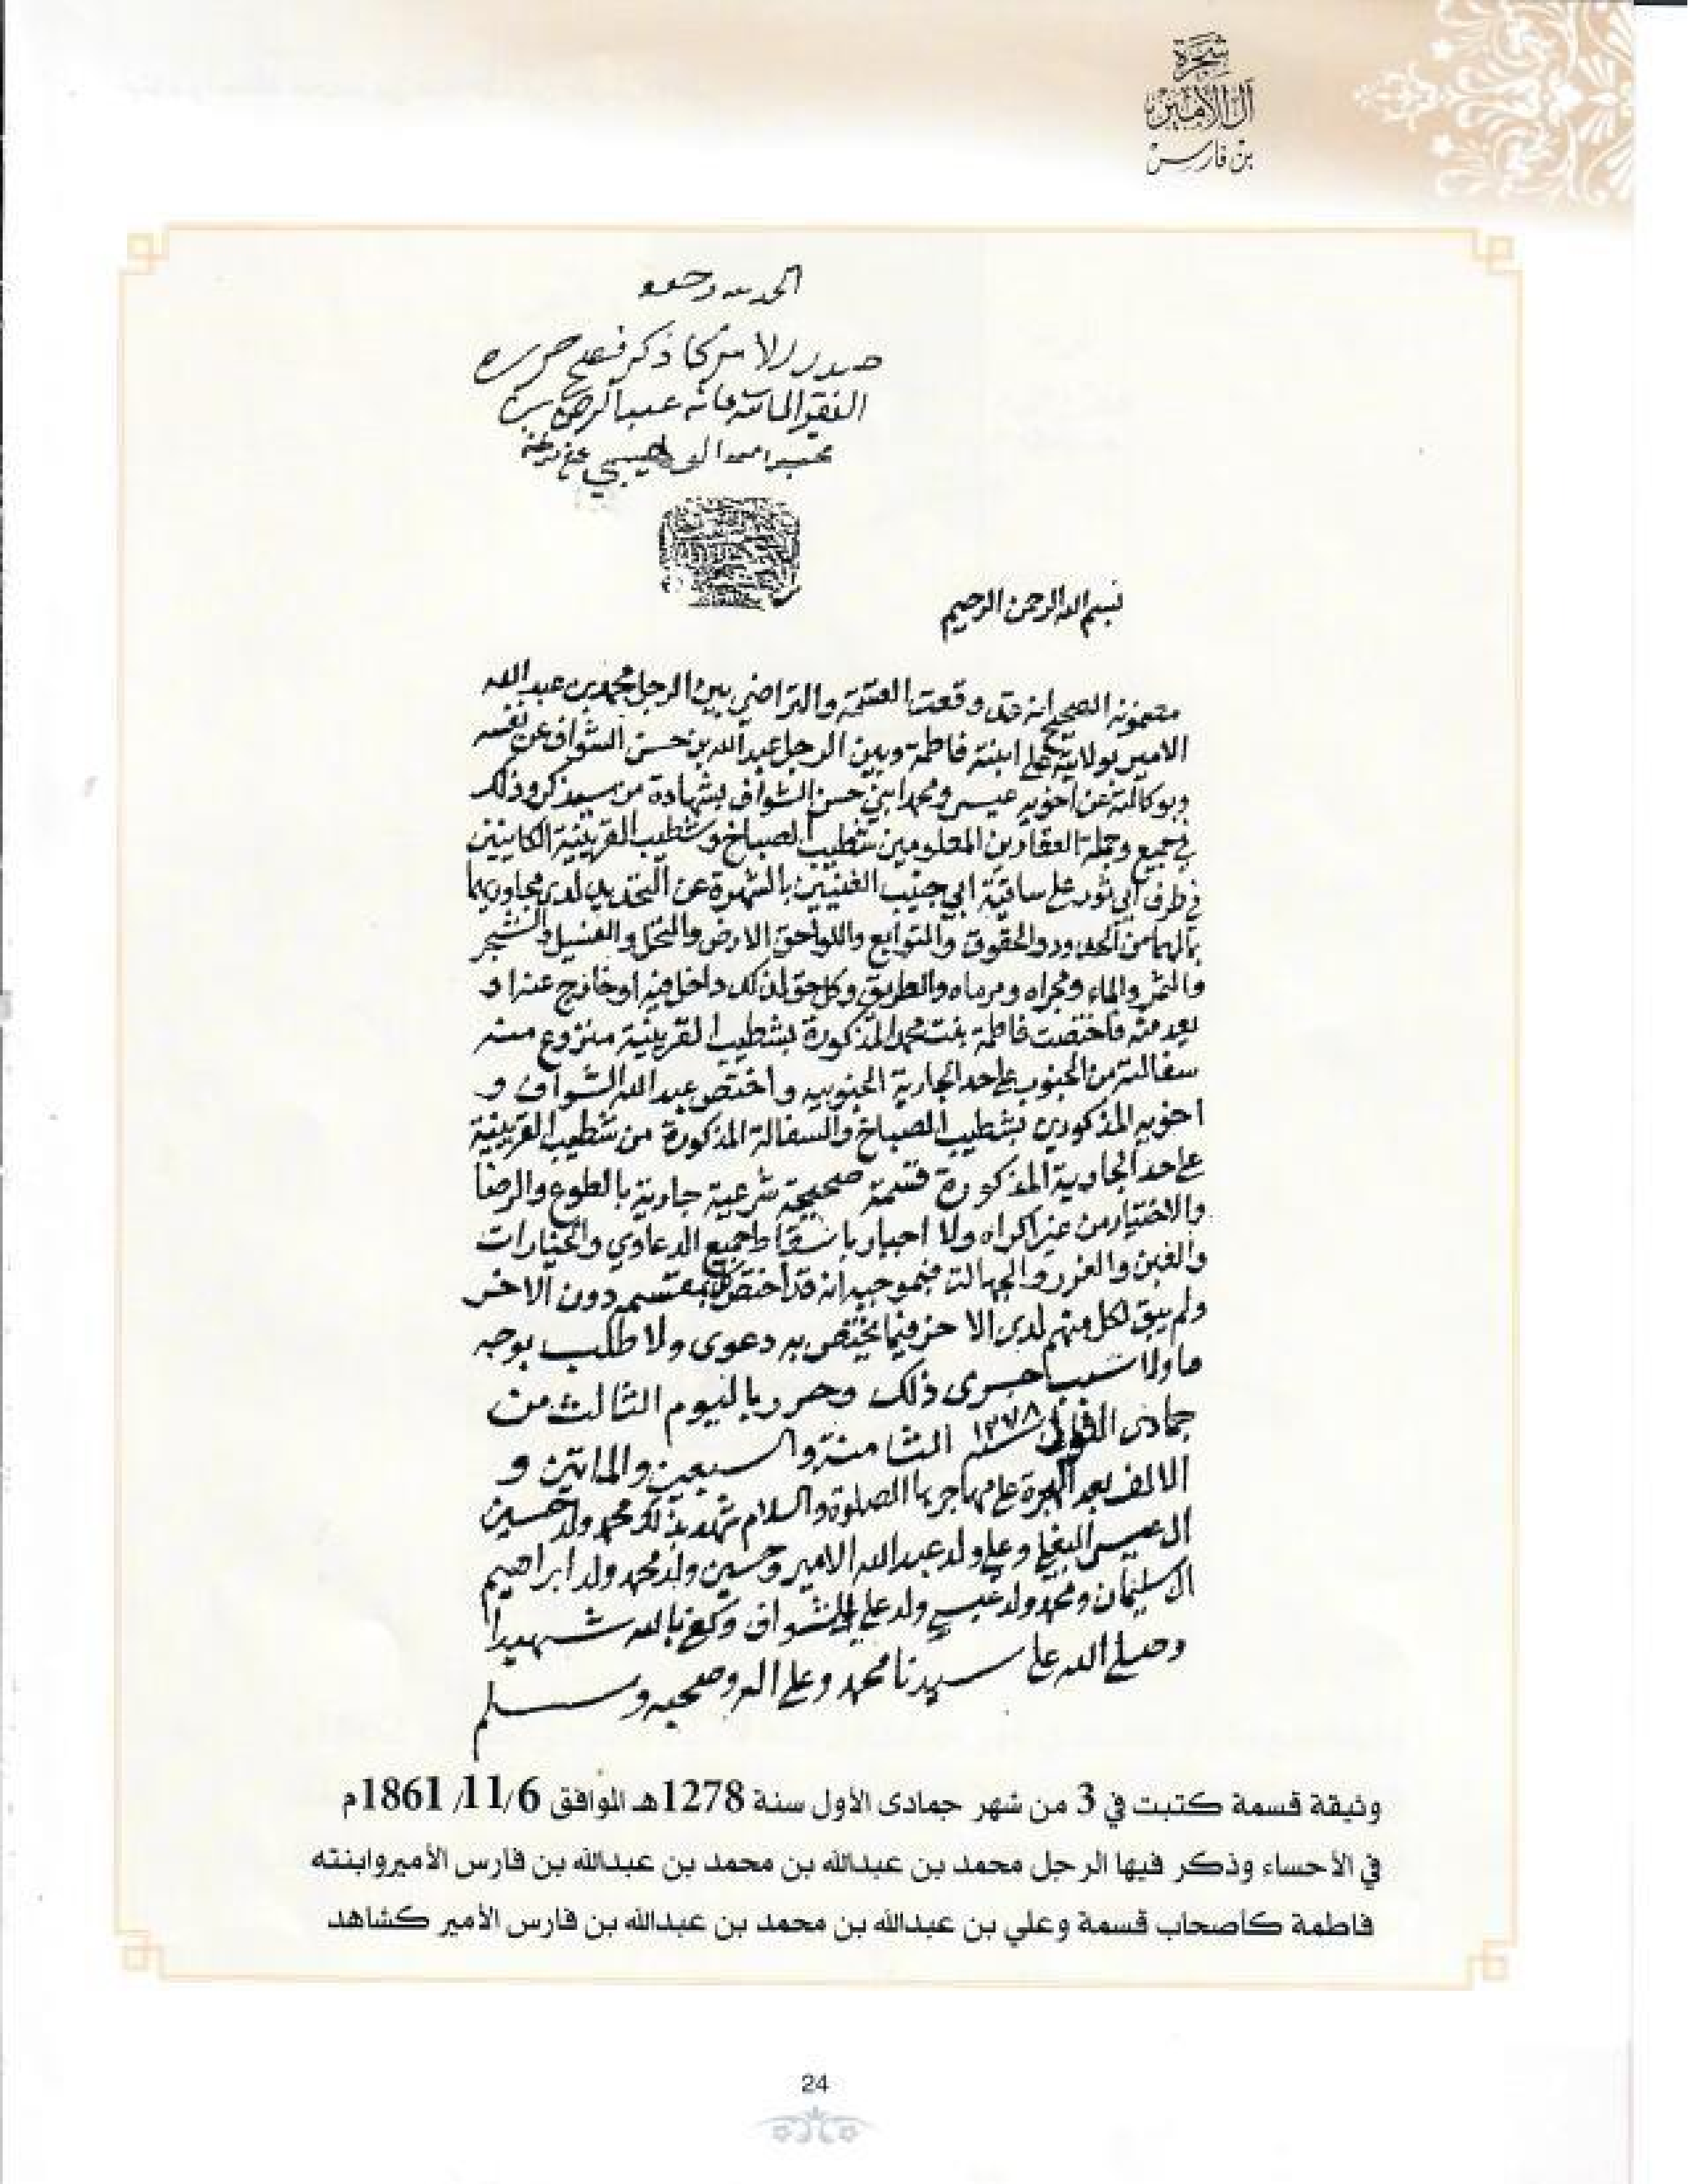 شجرة
آل الأمير
بن فارس
الحمد لله وحده
صدر الامر كما ذكر فصح حرره
الفقير الى الله عبدالرحمن بن
الوهيبي عفي عنه
بسم الله الرحمن الرحيم
مضمونه الصحيح انه قد وقعت القسمة والتراضي بين الرجل محمد بن عبدالله
الامير بولايته على ابنته فاطمة وبين الرجل عبدالله بن حسن الشواف عن نفسه
وبوكالته عن اخويه عيسى ومحمد ابني حسن الشواف بشهادة من سيذكر وذلك
في جميع وجملة العقارين المعلومين شطيب الصباخ وشطيب القرينية الكاينين
في طرف ابي ثور على ساقية ابي جنيب الغنيين بالشهرة عن التحديد لدى مجاوريهما
بمالهما من الحدود والحقوق والتوابع واللواحق الارض والنخل والفسيل والشجر
والثمر والماء ومجراه ومرماه والطريق وكل حق لذلك داخل فيه او خارج عنه او
يعد منه فاختصت فاطمة بنت محمد المذكورة بشطيب القرينية منزوع منه
سفالته من الجنوب على حد الجارية الجنوبيه واختص عبدالله الشواف و
اخويه المذكورين بشطيب الصباخ والسفالة المذكورة من شطيب القرينية
على حد الجارية المذكورة قسمة صحيحة شرعية جارية بالطوع والرضا
والاختيار من غير اكراه ولا اجبار باسقاط جميع الدعاوي والخيارات
والغبن والغرر والجهالة فبموجبه انه قد اختص كل بقسمه دون الاخر
ولم يبق لكل منهم لدى الاخر فيما يختص به دعوى ولا طلب بوجه
ما ولا سبب جرى ذلك وحرر باليوم الثالث من
جمادى الاول سنه ١٢٧٨ الثامنة والسبعين والماتين و
الالف بعد الهجرة على مهاجرها الصلوة والسلام شهد بذلك محمد ولد حسين
ال عيسى البغلي وعلي ولد عبدالله الامير وحسين ولد محمد ولد ابراهيم
ال سليمان ومحمد ولد عيسى ولد علي الشواف وكفى بالله شهيدا
وصلى الله على سيدنا محمد وعلى اله وصحبه وسلم
وثيقة قسمة كتبت في 3 من شهر جمادى الأول سنة 1278هـ الموافق 1861/11/6م
في الأحساء وذكر فيها الرجل محمد بن عبدالله بن محمد بن عبدالله بن فارس الأمير وابنته
فاطمة كأصحاب قسمة وعلي بن عبدالله بن محمد بن عبدالله بن فارس الأمير كشاهد
24